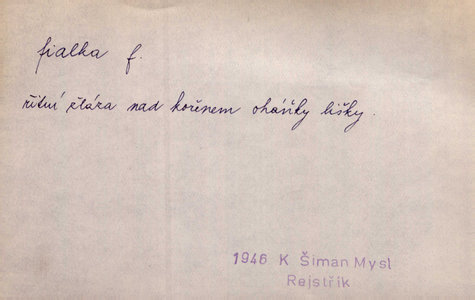 fialka f.
řitní žláza nad kořenem oháňky lišky.
1946 K Šiman Mysl
Rejstřík